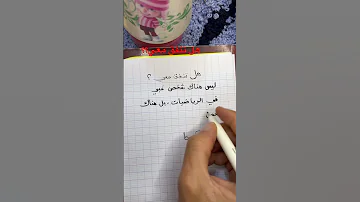 هل تتفق معي؟!
هل تتفق معي ؟
ليس هناك شخص غبي
في الرياضيات ، بل هناك